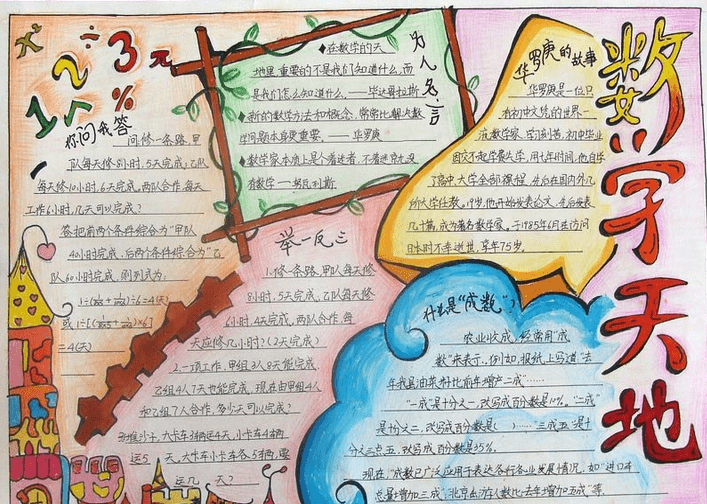 数学天地
你问我答
问修一条路,甲
队每天修8小时,5天完成;乙队
每天修10小时,6天完成,两队合作,每天
工作6小时,几天可以完成?
答把前两个条件综合为“甲队
40小时完成,后两个条件综合为“乙
队60小时完成,则列式为:
=4(天)
为人名言
在数学的天
地里重要的不是我们知道什么,而
是我们怎么知道什么.——毕达哥拉斯
新的数学方法和概念,常常比解决数
学问题本身更重要.——华罗庚
数学家本质上是个着迷者,不着迷就没
有数学——努瓦利斯
华罗庚的故事
华罗庚是一位只
有初中文凭的世界一
流数学家,学习刻苦,初中毕业
因交不起学费失学,用七年时间,他自学
了高中,大学全部课程,先后在国内外几
所大学任教,19岁,他开始发表论文,先后发表
几十篇,成为著名数学家,于1985年6月去访问
日本时不幸逝世,享年75岁.
举一反三
1.修一条路,甲队每天修
8小时,5天完成,乙队每天修
6小时,4天完成,两队合作,每
天应修几小时?(2天完成)
2.一项工作,甲组3人8天能完成,
乙组4人7天也能完成,现在由甲组4人
和乙组7人合作,多少天可以完成?
沙,大卡车3辆运4天,小卡车4辆
运5天,大卡车小卡车各5辆,要
运几天?
什么是“成数”?
农业收成,经常用“成
数”来表示.例如,报纸上写道“去
年我县油菜籽比前年增产二成”……
“一成”是十分之一,改写成百分数是10%.“二成”
是十分之二,改写成百分数是( )……“三成五”是十
分之三点五,改写成百分数是35%.
现在,“成数”已广泛应用于表达各行各业发展情况,如“进口
总量增加三成”,北京出游人数比去年增加二成”等.